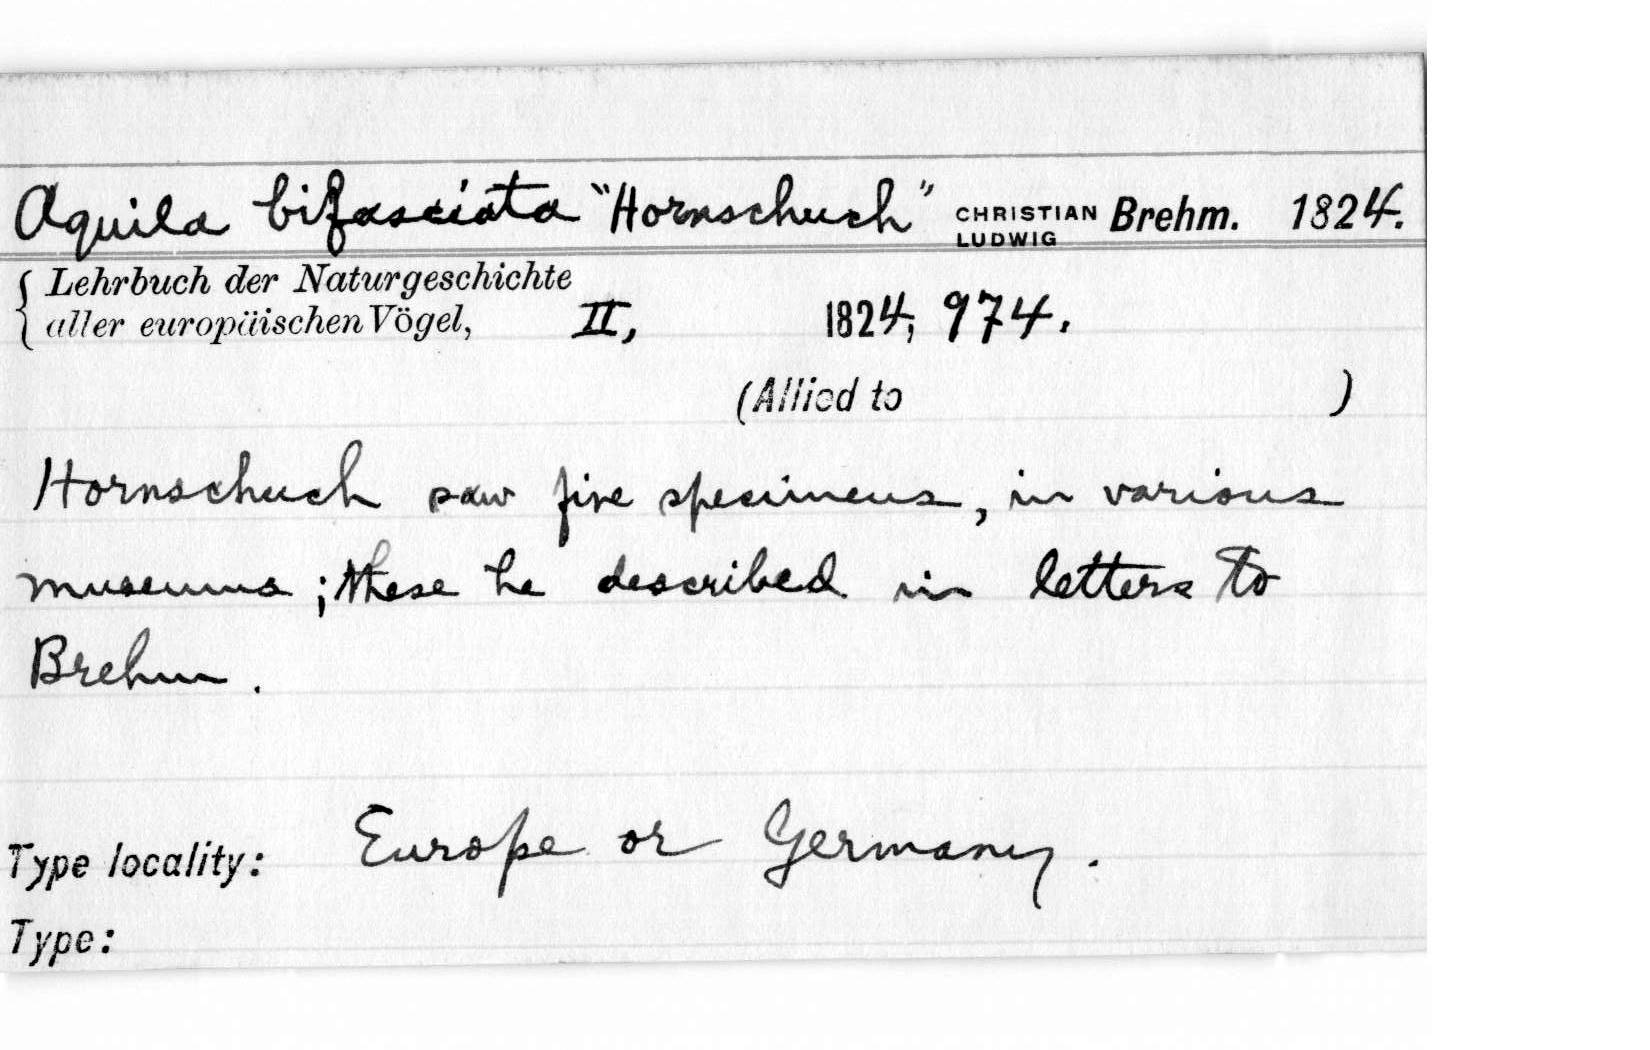 Aquila bifasciata "Hornschuch" CHRISTIAN LUDWIG Brehm. 1824.
{ Lehrbuch der Naturgeschichte
aller europäischen Vögel, II, 1824, 974.
(Allied to )
Hornschuch saw five specimens, in various
museums; these he described in letters to
Brehm.
Type locality: Europe or Germany.
Type: